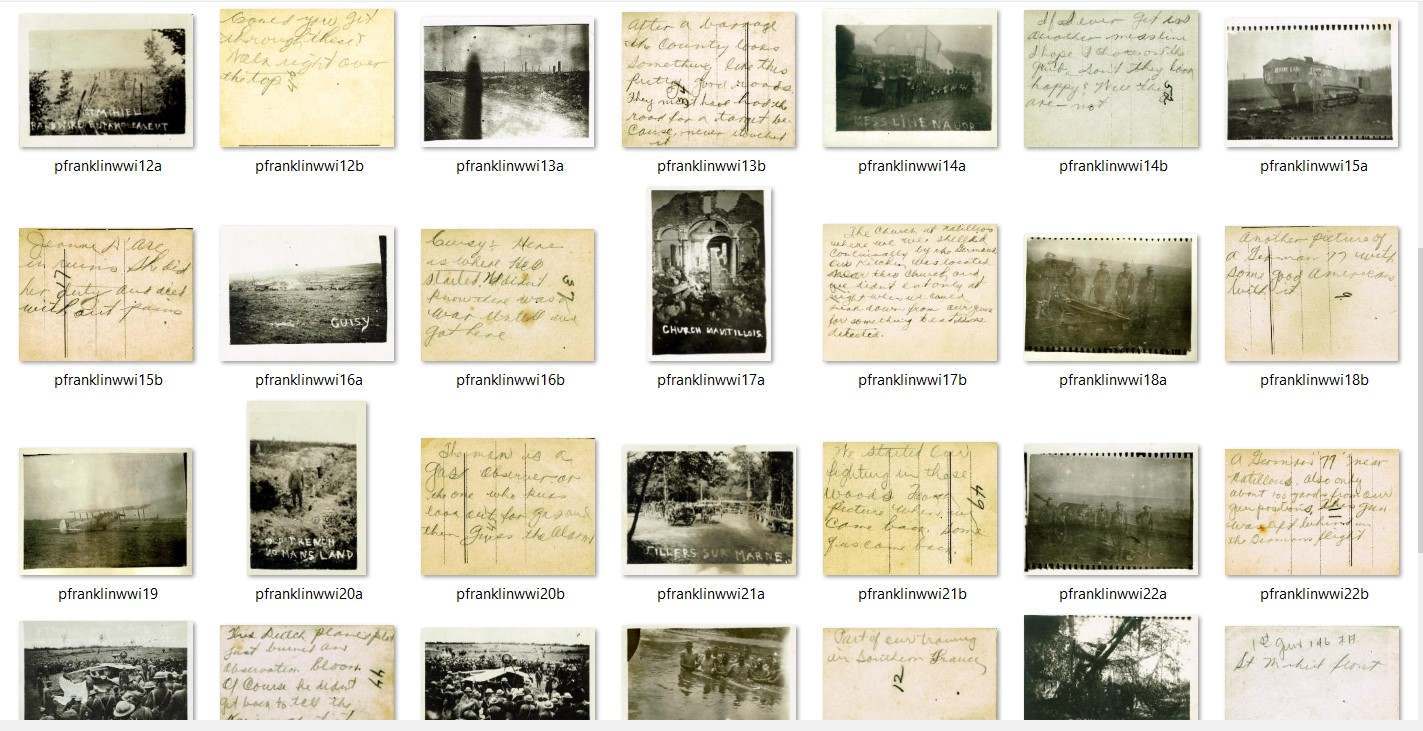 ST MIHIEL
Could you get
through these?
Walk right over
the top
After a barrage
the County looks
something like this
Pretty good roads.
They must have had the
road for a target be-
cause, never touched
it
MESS LINE NAUOD
If I ever get in
another mess line
I hope I
don't they look
happy? Well they
are - not
pfranklinwwi12a
pfranklinwwi12b
pfranklinwwi13a
pfranklinwwi13b
pfranklinwwi14a
pfranklinwwi14b
pfranklinwwi15a
Jeanne D Arc
in ruins She did
her duty and died
without
GUISY
Cuisy: Here
is where
started
know there was a
War until we
got here
37
CHURCH NANTILLOIS.
The Church at Natillios
where we was shelled
Continually by the Germans
Our Kitchen was located
near this Church, and
we didnt eat only at
night when we could
run down from our guns
for something to eat
detected.
Another picture of
a German 77 with
some good Americans
with it
pfranklinwwi15b
pfranklinwwi16a
pfranklinwwi16b
pfranklinwwi17a
pfranklinwwi17b
pfranklinwwi18a
pfranklinwwi18b
OLD TRENCH
NO MANS LAND
The man is a
gas observer or
the one who keeps
look out for gas and
then gives the Alarm
TILLERS SUR MARNE.
We started our
fighting in these
woods
picture when we
came back, some
guns came back.
49
A German 77 near
Natillious, also only
about 100 yards from our
gun positions, this gun
was left behind in
the Germans flight
pfranklinwwi19
pfranklinwwi20a
pfranklinwwi20b
pfranklinwwi21a
pfranklinwwi21b
pfranklinwwi22a
pfranklinwwi22b
This Dutch plane
just burned an
Observation Bloon
Of Course he didnt
get back to tell the
44
Part of our training
in Southern France
12
1st Gun 146
St Mihiel front